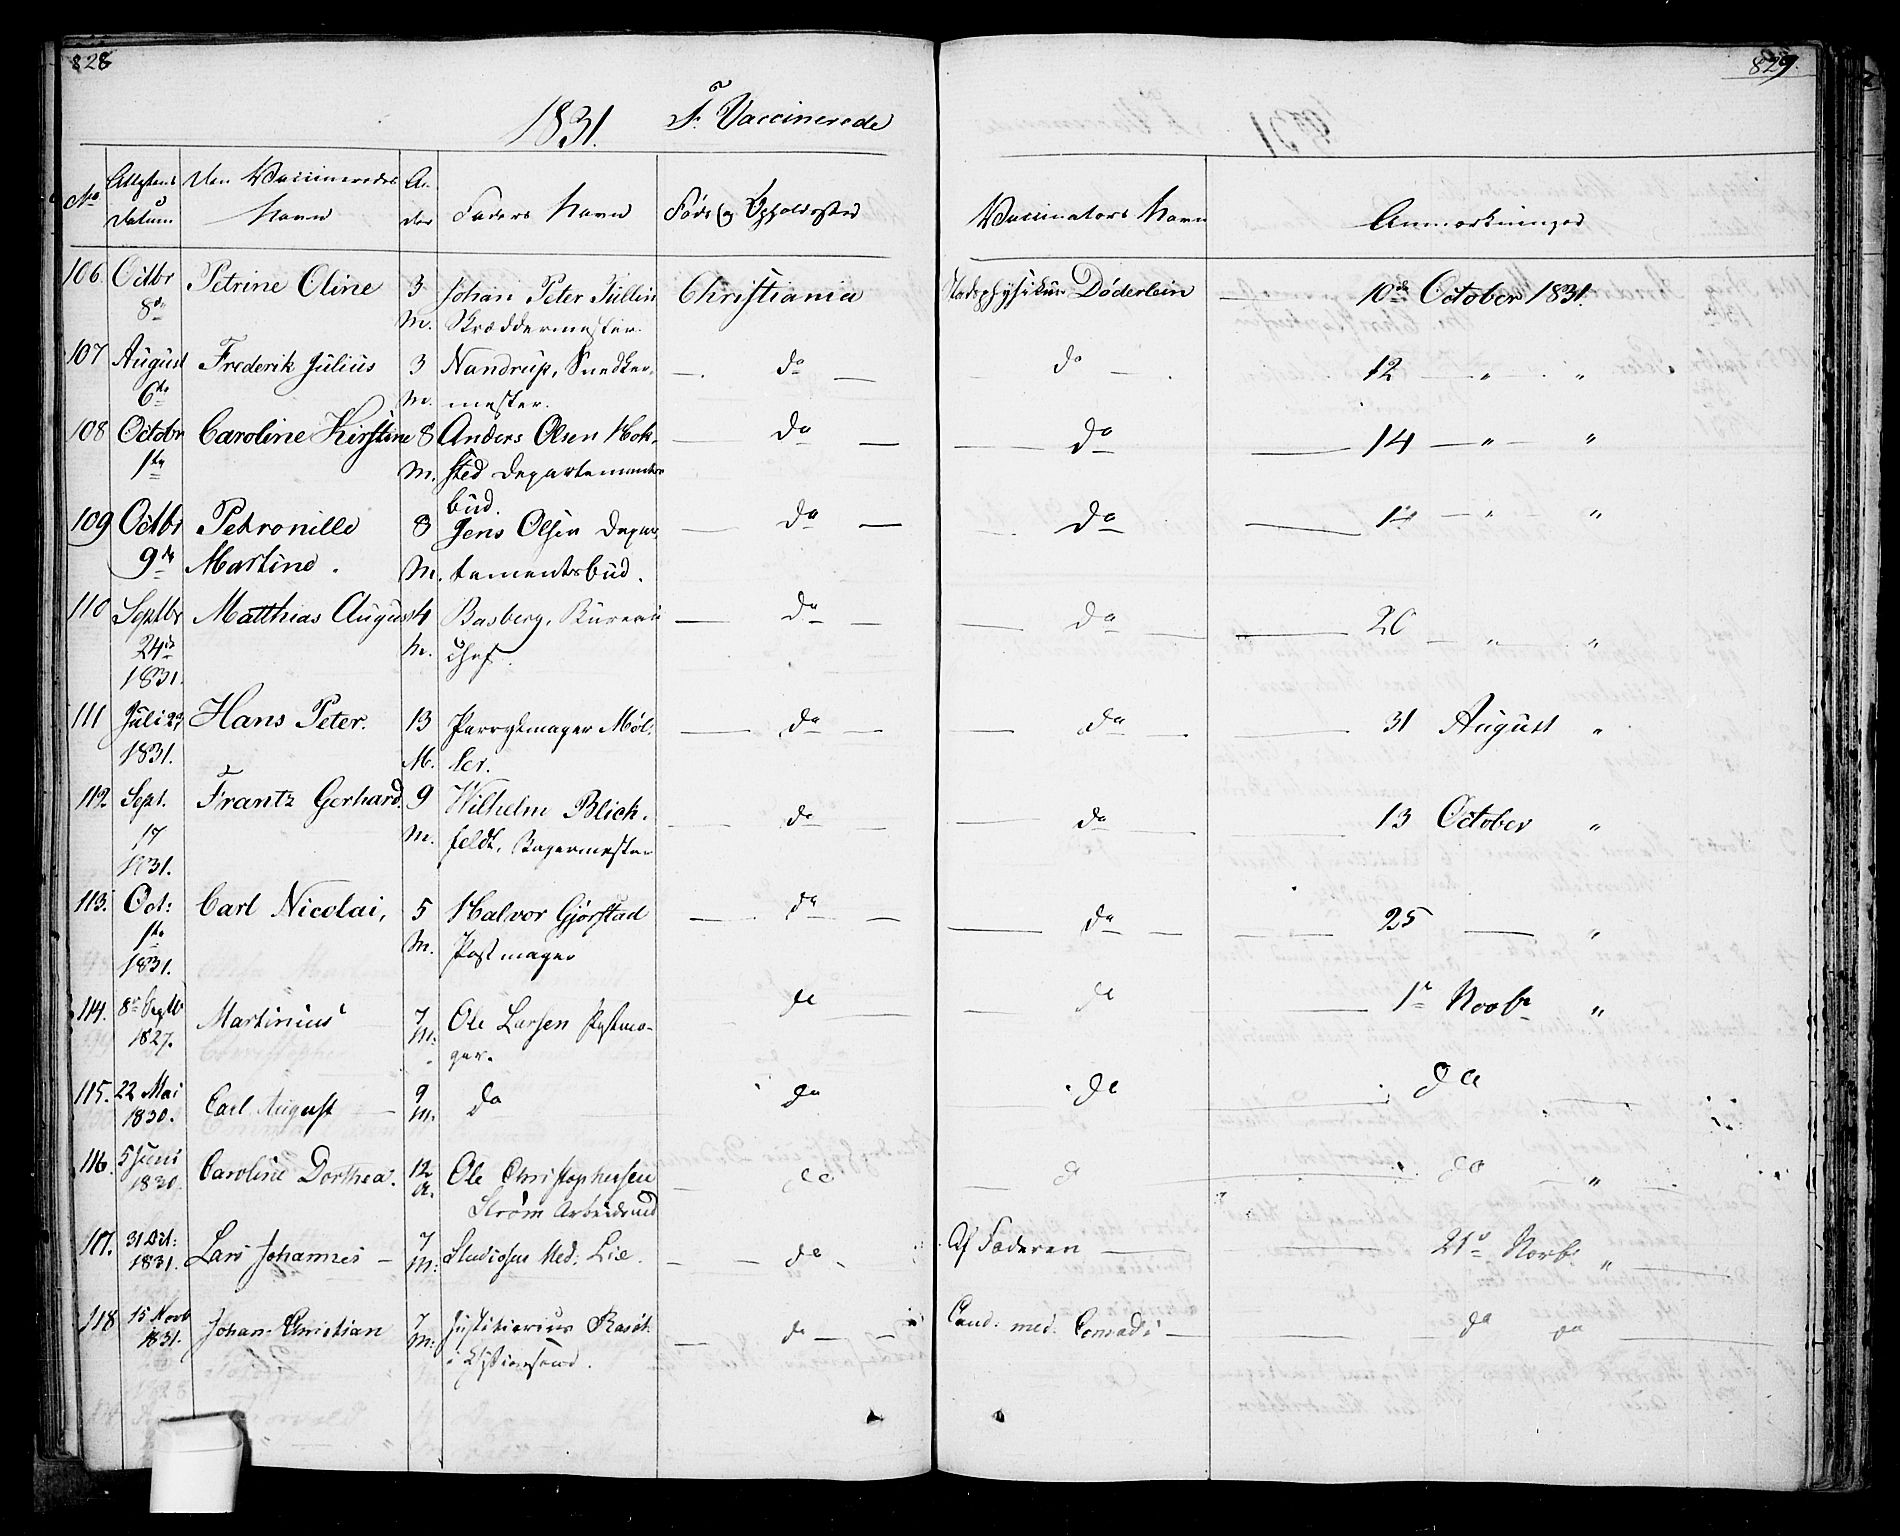 828
829.
1831. F. Vaccinerede
No Attestens Datum Den Vaccineredes Navn Alder Faders Navn Føde og Opholdssted Vaccinators Navn Anmærkninger
106. Octbr 8de Petrine Oline 3 M. Johan Peter Tullin Skræddermester. Christiania Stadsphysikus Døderlein 10de October 1831.
107 August 6te Frederik Julius 3 M. Nandrup, Snedker-
mester. do do 12 " "
108 Octobr 1te Caroline Kirstine 8 M. Anders Olsen Hok-
sted Departements
bud. do do 14 " "
109 Octbr 9de Petronille Martine. 8 M. Jens Olsen Depar
tementsbud. do do 14 " "
110 Septbr 24de 1831. Matthias August 4 M. Basberg, Bureau
chef. do do 20 " "
111 Juli 1831. Hans Peter. 13 M. Parrykmager Møl-
ler. do do 31 August "
112. Sept. 17 1831. Frantz Gerhard. 9 M. Wilhelm Blich-
feldt, Bagermester do do 13 October "
113. Oct: 1te 1831. Carl Nicolai, 5 M. Halvor Gjørstad
Postmager do do 25 "
114. 8de Septb 1827. Martinius 7 M. Ole Larsen Postma-
ger. do do 1e Novbr "
115. 22 Mai 1830. Carl August 9 M. do do do do
116. 5 Juni 1830 Caroline Dorthea. 12 A. Ole Christophersen
Strøm Arbeidsmd do do do "
117. 31 Oct: 1831. Lars Johannes 7 M: Studiosus Med: Lie. do Af Faderen 21de Novbr "
118 15 Novb 1831. Johan Christian 7 M: Justitiarius
i Christiansand. do Cand. med. Conradi do do